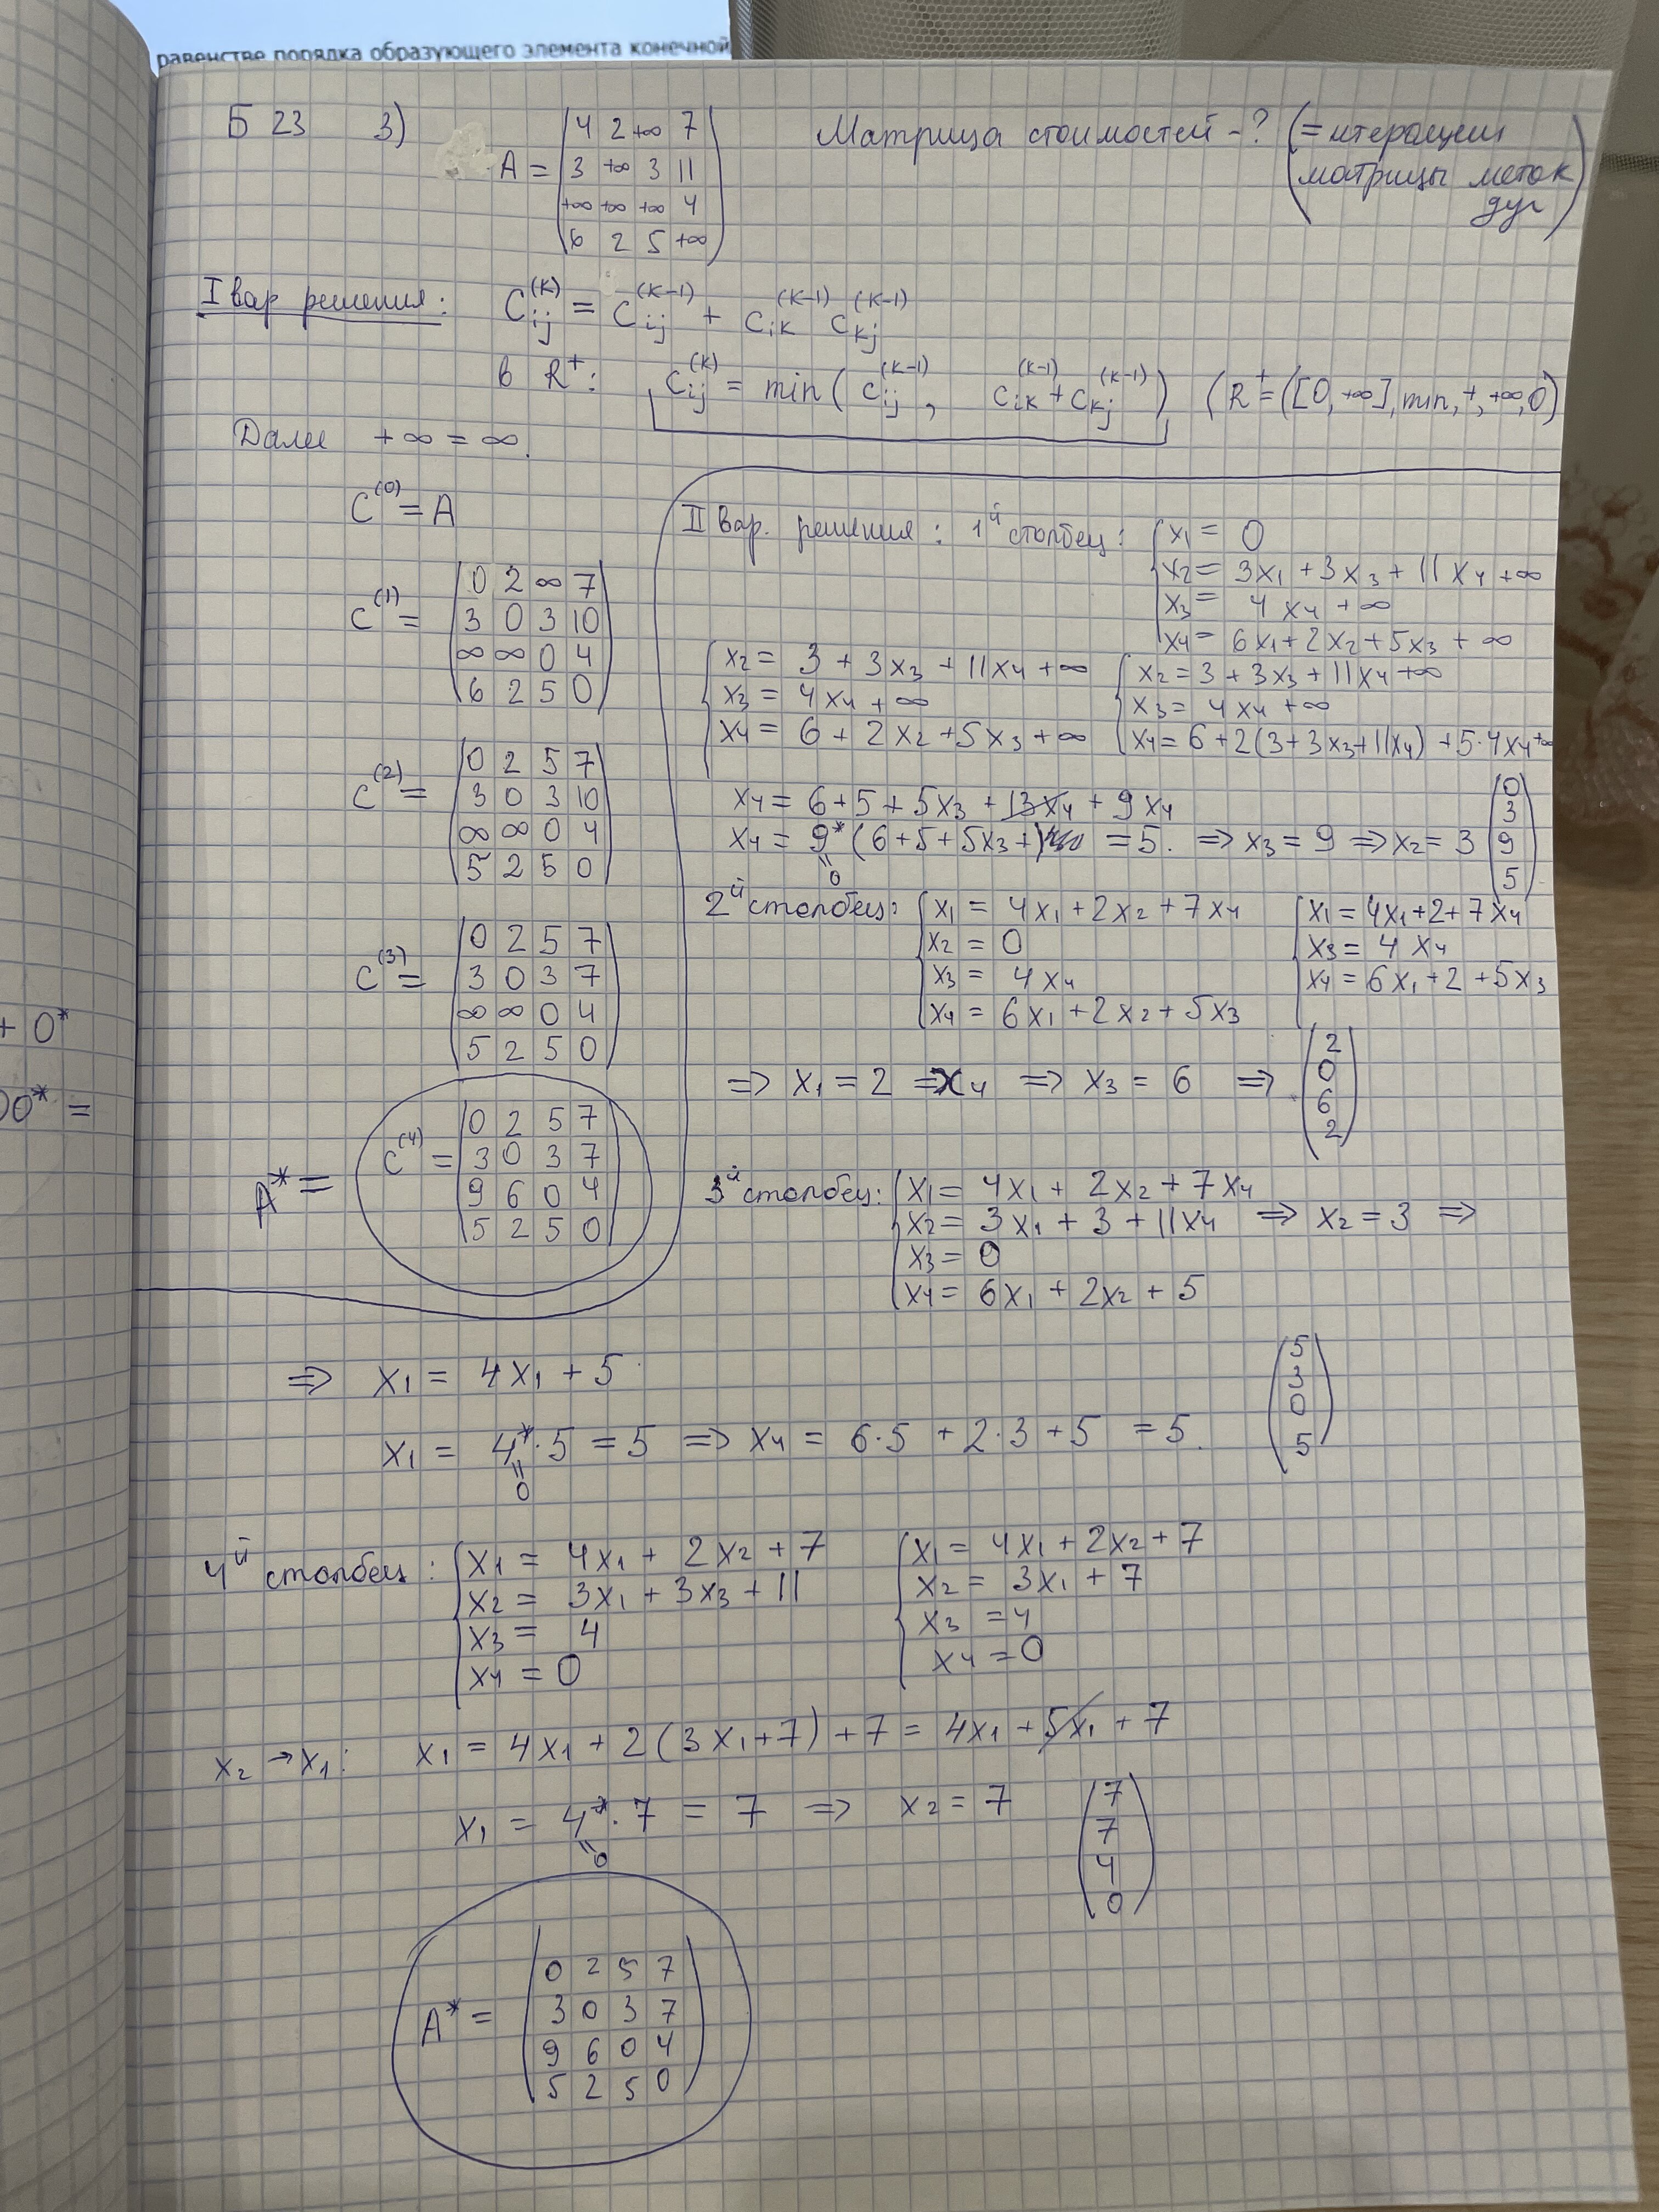 равенстве порядка образующего элемента конечной
Б 23 3) A = (4 2 +∞ 7
3 +∞ 3 11
+∞ +∞ +∞ 4
6 2 5 +∞)
Матрица стоимостей - ? (= итерации
матрицы меток
дуг)
I вар решения: C_ij^(k) = C_ij^(k-1) + C_ik^(k-1) C_kj^(k-1)
в R⁺: C_ij^(k) = min(C_ij^(k-1), C_ik^(k-1) + C_kj^(k-1)) (R⁺ = ([0, +∞], min, +, +∞, 0)
Далее +∞ = ∞.
C^(0) = A
C^(1) = (0 2 ∞ 7
3 0 3 10
∞ ∞ 0 4
6 2 5 0)
C^(2) = (0 2 5 7
3 0 3 10
∞ ∞ 0 4
5 2 5 0)
C^(3) = (0 2 5 7
3 0 3 7
∞ ∞ 0 4
5 2 5 0)
A* = C^(4) = (0 2 5 7
3 0 3 7
9 6 0 4
5 2 5 0)
+ 0*
00* =
II вар. решения: 1й столбец: { x1 = 0
x2 = 3x1 + 3x3 + 11x4 + ∞
x3 = 4x4 + ∞
x4 = 6x1 + 2x2 + 5x3 + ∞
{ x2 = 3 + 3x3 + 11x4 + ∞
x3 = 4x4 + ∞
x4 = 6 + 2x2 + 5x3 + ∞
{ x2 = 3 + 3x3 + 11x4 + ∞
x3 = 4x4 + ∞
x4 = 6 + 2(3 + 3x3 + 11x4) + 5·4x4 + ∞
x4 = 6 + 5 + 5x3 + 13x4 + 9x4
x4 = 9* (6 + 5 + 5x3 + ) = 5. ⇒ x3 = 9 ⇒ x2 = 3
= 0
(0
3
9
5)
2й столбец: { x1 = 4x1 + 2x2 + 7x4
x2 = 0
x3 = 4x4
x4 = 6x1 + 2x2 + 5x3
{ x1 = 4x1 + 2 + 7x4
x3 = 4x4
x4 = 6x1 + 2 + 5x3
⇒ x1 = 2 = x4 ⇒ x3 = 6 ⇒ (2
0
6
2)
3й столбец: { x1 = 4x1 + 2x2 + 7x4
x2 = 3x1 + 3 + 11x4 ⇒ x2 = 3 ⇒
x3 = 0
x4 = 6x1 + 2x2 + 5
⇒ x1 = 4x1 + 5
x1 = 4*·5 = 5 ⇒ x4 = 6·5 + 2·3 + 5 = 5.
= 0
(5
3
0
5)
4й столбец: { x1 = 4x1 + 2x2 + 7
x2 = 3x1 + 3x3 + 11
x3 = 4
x4 = 0
{ x1 = 4x1 + 2x2 + 7
x2 = 3x1 + 7
x3 = 4
x4 = 0
x2 → x1: x1 = 4x1 + 2(3x1 + 7) + 7 = 4x1 + 5x1 + 7
x1 = 4*·7 = 7 ⇒ x2 = 7
= 0
(7
7
4
0)
A* = (0 2 5 7
3 0 3 7
9 6 0 4
5 2 5 0)